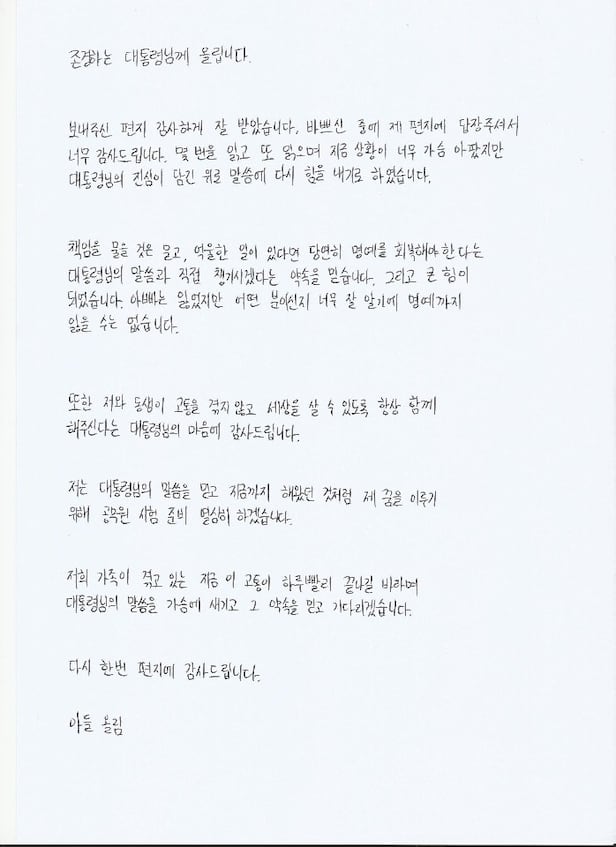 존경하는 대통령님께 올립니다.
보내주신 편지 감사하게 잘 받았습니다. 바쁘신 중에 제 편지에 답장주셔서
너무 감사드립니다. 몇 번을 읽고 또 읽으며 지금 상황이 너무 가슴 아팠지만
대통령님의 진심이 담긴 위로 말씀에 다시 힘을 내기로 하였습니다.
책임을 물을 것은 물고, 억울한 일이 있다면 당연히 명예를 회복해야 한다는
대통령님의 말씀과 직접 챙기시겠다는 약속을 믿습니다. 그리고 큰 힘이
되었습니다. 아빠는 잃었지만 어떤 분이신지 너무 잘 알기에 명예까지
잃을 수는 없습니다.
또한 저와 동생이 고통을 겪지 않고 세상을 살 수 있도록 항상 함께
해주신다는 대통령님의 마음에 감사드립니다.
저는 대통령님의 말씀을 믿고 지금까지 해왔던 것처럼 제 꿈을 이루기
위해 공무원 시험 준비 열심히 하겠습니다.
저희 가족이 겪고 있는 지금 이 고통이 하루빨리 끝나길 바라며
대통령님의 말씀을 가슴에 새기고 그 약속을 믿고 기다리겠습니다.
다시 한번 편지에 감사드립니다.
아들 올림